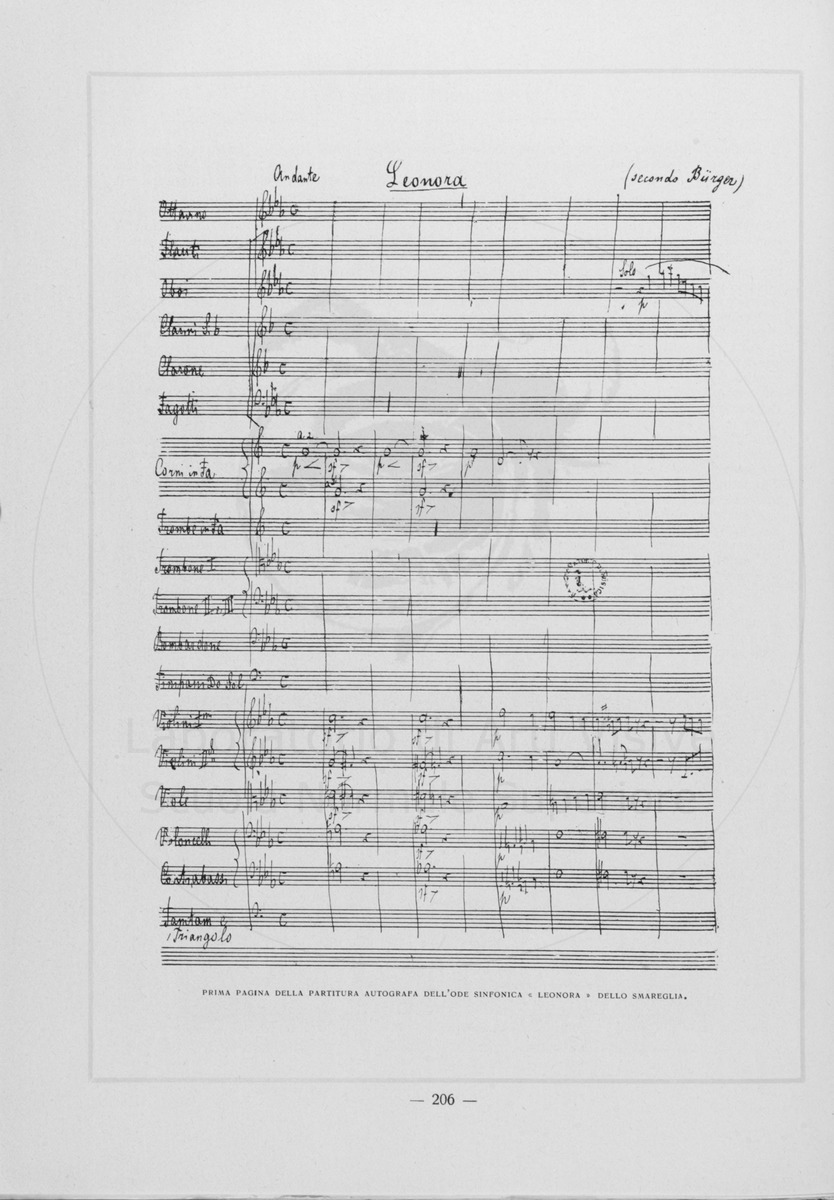 Andante Leonora (secondo Bürger)
Ottavino
Flauti
Oboi Solo
p
Clarini Si b
Clarone
Fagotti
a 2
p sf p sf p
Corni in Fa
sf sf
Trombe in Fa
Trombone I
Trombone II e III
Bombardone
Timpani Do Sol
Violini Imi
sf sf p
Violini IIdi
sf sf p
Viole
sf sf p
Violoncelli
sf p
Contrabassi
sf p
Tamtam e
Triangolo
PRIMA PAGINA DELLA PARTITURA AUTOGRAFA DELL'ODE SINFONICA « LEONORA » DELLO SMAREGLIA.
— 206 —